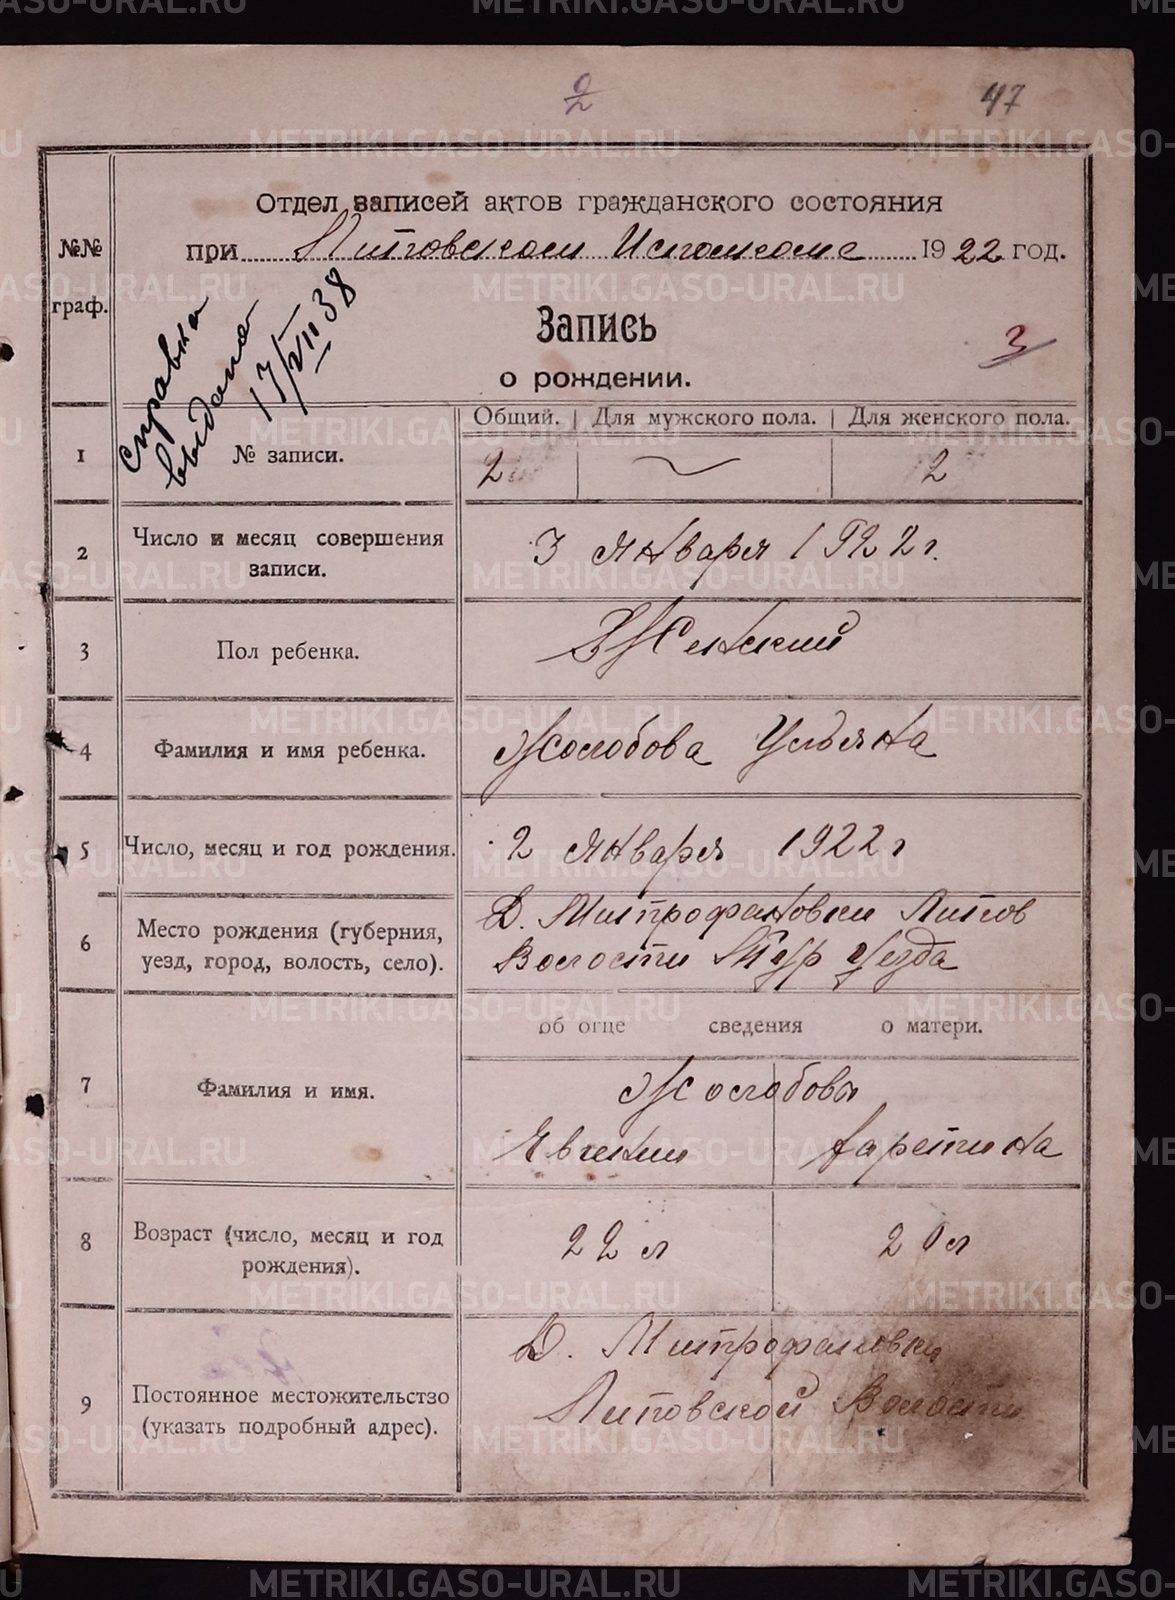 2
47
Отдел записей актов гражданского состояния
при Липовском Исполкоме 1922 год.
№№
граф.
Справка
выдана
17/VII 38
Запись
о рождении.
3
Общий. Для мужского пола. Для женского пола.
1 № записи. 2 2
2 Число и месяц совершения
записи.
3 января 1922 г.
3 Пол ребенка. Женский
4 Фамилия и имя ребенка. Жолобова Ульяна
5 Число, месяц и год рождения. 2 января 1922 г
6 Место рождения (губерния,
уезд, город, волость, село).
Д. Митрофановки Липов
Волости Тур уезда
об отце сведения о матери.
7 Фамилия и имя.
Жолобовы
Явгений Фаретина
8 Возраст (число, месяц и год
рождения).
22 л 20 л
9 Постоянное местожительство
(указать подробный адрес).
Д. Митрофановки
Липовской Волости
METRIKI.GASO-URAL.RU